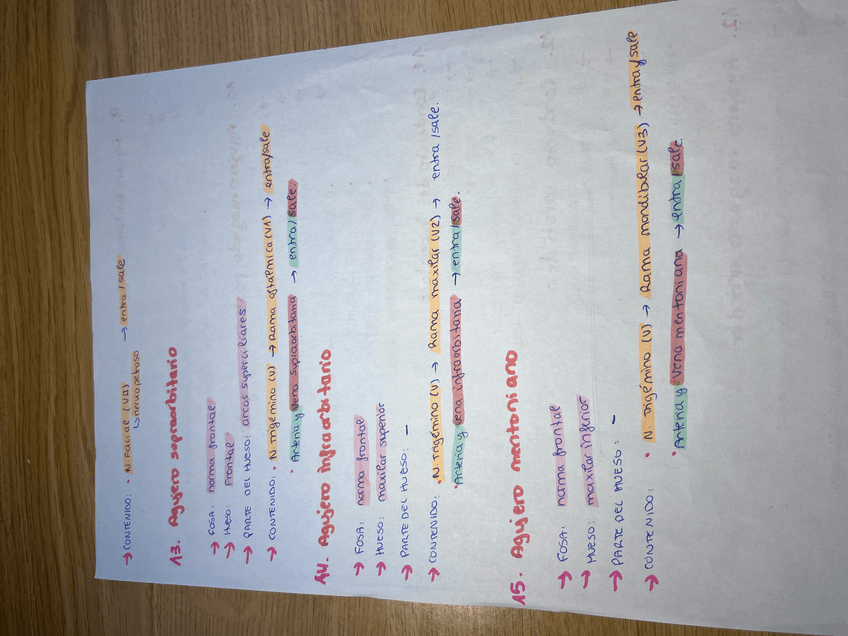 → CONTENIDO: • N. Facial (VII) → entra / sale
↳ nervio petroso
13. Agujero supraorbitario
→ FOSA: norma frontal
→ HUESO: Frontal
→ PARTE DEL HUESO: arcos superciliares
→ CONTENIDO: • N. trigémino (V) → Rama oftálmica (V1) → entra/sale
• Arteria y vena supraorbitaria → entra/sale.
14. Agujero infraorbitario
→ FOSA: norma frontal
→ HUESO: maxilar superior
→ PARTE DEL HUESO: -
→ CONTENIDO: • N. trigémino (V) → Rama maxilar (V2) → entra /sale.
• Arteria y vena infraorbitaria → entra/sale.
15. Agujero mentoniano
→ FOSA: norma frontal
→ HUESO: maxilar inferior
→ PARTE DEL HUESO: -
→ CONTENIDO: • N. trigémino (V) → Rama mandibular (V3) → entra/sale
• Arteria y vena mentoniana → entra/sale.